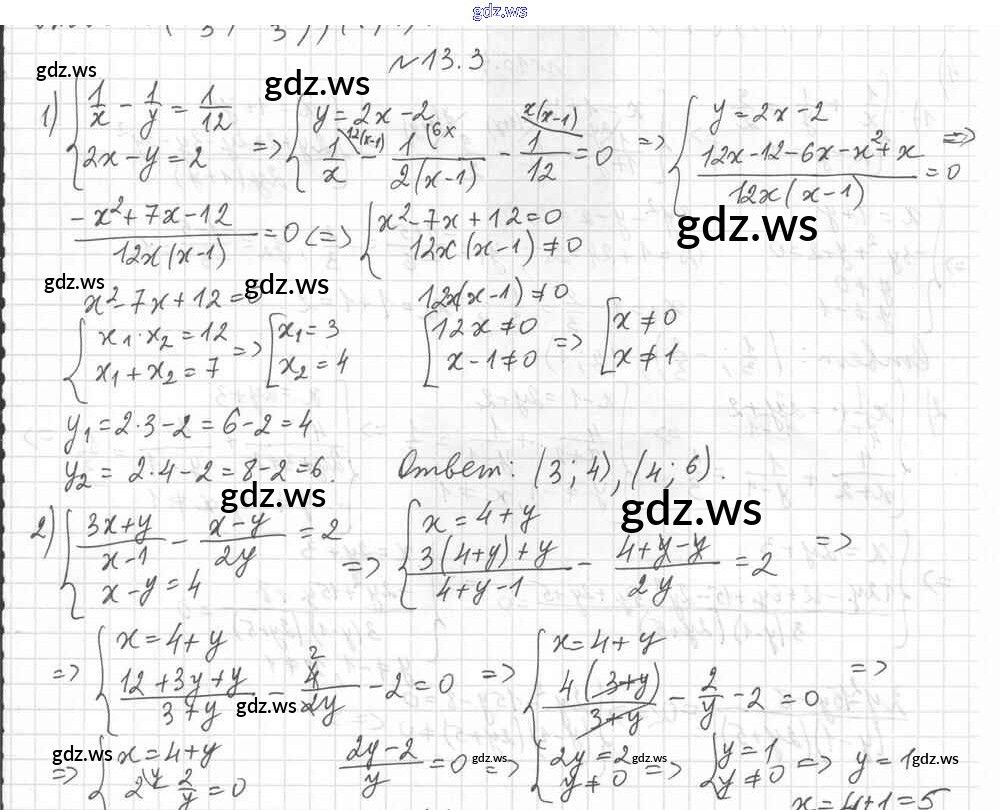 gdz.ws
№13.3
gdz.ws gdz.ws
1) { 1/x - 1/y = 1/12 ; 2x - y = 2 => { y = 2x - 2 ; 1/x (12(x-1)) - 1/(2(x-1)) (6x) - 1/12 (x(x-1)) = 0 => { y = 2x - 2 ; (12x - 12 - 6x - x² + x)/(12x(x-1)) = 0 =>
(-x² + 7x - 12)/(12x(x-1)) = 0 <=> { x² - 7x + 12 = 0 ; 12x(x-1) ≠ 0
gdz.ws
gdz.ws gdz.ws
x² - 7x + 12 = 0 12x(x-1) ≠ 0
{ x₁·x₂ = 12 ; x₁ + x₂ = 7 => [ x₁ = 3 ; x₂ = 4 [ 12x ≠ 0 ; x - 1 ≠ 0 => [ x ≠ 0 ; x ≠ 1
y₁ = 2·3 - 2 = 6 - 2 = 4
y₂ = 2·4 - 2 = 8 - 2 = 6. Ответ: (3; 4), (4; 6).
gdz.ws gdz.ws
2) { (3x+y)/(x-1) - (x-y)/(2y) = 2 ; x - y = 4 => { x = 4 + y ; (3(4+y)+y)/(4+y-1) - (4+y-y)/(2y) = 2 =>
=> { x = 4 + y ; (12+3y+y)/(3+y) - 4/(2y) (2) - 2 = 0 => { x = 4 + y ; 4(3+y)/(3+y) - 2/y - 2 = 0 =>
gdz.ws
gdz.ws gdz.ws gdz.ws gdz.ws
=> { x = 4 + y ; 2 (y) - 2/y = 0 (2y-2)/y = 0 => { 2y = 2 ; y ≠ 0 => { y = 1 ; y ≠ 0 => y = 1
x = 4+1 = 5